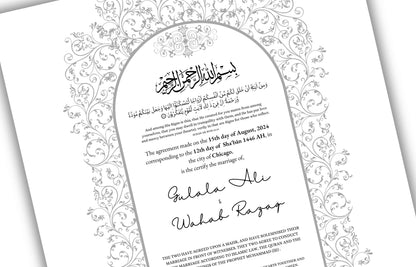 بِسْمِ اللهِ الرَّحْمٰنِ الرَّحِيمِ
وَمِنْ آيَاتِهِ أَنْ خَلَقَ لَكُم مِّنْ أَنفُسِكُمْ أَزْوَاجًا لِّتَسْكُنُوا إِلَيْهَا وَجَعَلَ بَيْنَكُم مَّوَدَّةً
وَرَحْمَةً إِنَّ فِي ذَٰلِكَ لَآيَاتٍ لِّقَوْمٍ يَتَفَكَّرُونَ
And among His Signs is this, that He created for you mates from among
yourselves, that you may dwell in tranquility with them, and He has put love
and mercy between your (hearts); verily in that are Signs for those who reflect.
The agreement made on the 15th day of August, 2024
corresponding to the 12th day of Sha'bān 1446 AH, in
the city of Chicago,
is the certify the marriage of,
Gulala Ali
&
Wahab Razaq
THE TWO HAVE AGREED UPON A MAHR, AND HAVE SOLEMNISED THEIR
MARRIAGE IN FRONT OF WITNESSES. THEY TWO AGREE TO CONDUCT
THEIR MARRIAGE ACCORDING TO ISLAMIC LAW, THE QURAN AND THE
OF THE PROPHET MUHAMMAD